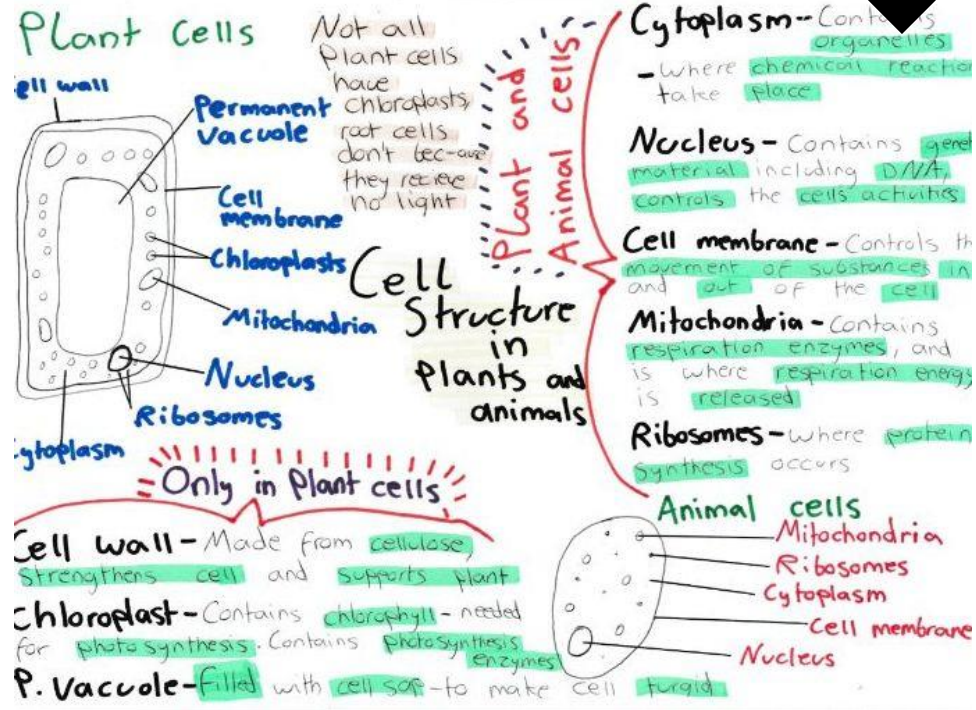 Plant cells
ell wall
Permanent
vacuole
Cell
membrane
Chloroplasts
Mitochondria
Nucleus
Ribosomes
ytoplasm
Not all
Plant cells
have
chloroplasts,
root cells
don't bec-ause
they recieve
no light
Plant and
Animal cells
Cell
Structure
in
Plants and
animals
Cytoplasm--
organelles
-where chemical reaction
take place
Nucleus - Contains
material including DNA,
controls the cells activities
Cell membrane - Controls th
movement of substances in
and out of the cell
Mitochondria - Contains
respiration enzymes, and
is where respiration energy
is released
Ribosomes - where protein
synthesis occurs
Only in Plant cells
Cell wall - Made from cellulose,
strengthens cell and supports plant
Chloroplast - Contains chlorophyll - needed
for photosynthesis. Contains photosynthesis
enzymes
P. Vacuole - filled with cell sap - to make cell turgid
Animal cells
Mitochondria
Ribosomes
Cytoplasm
Cell membrane
Nucleus